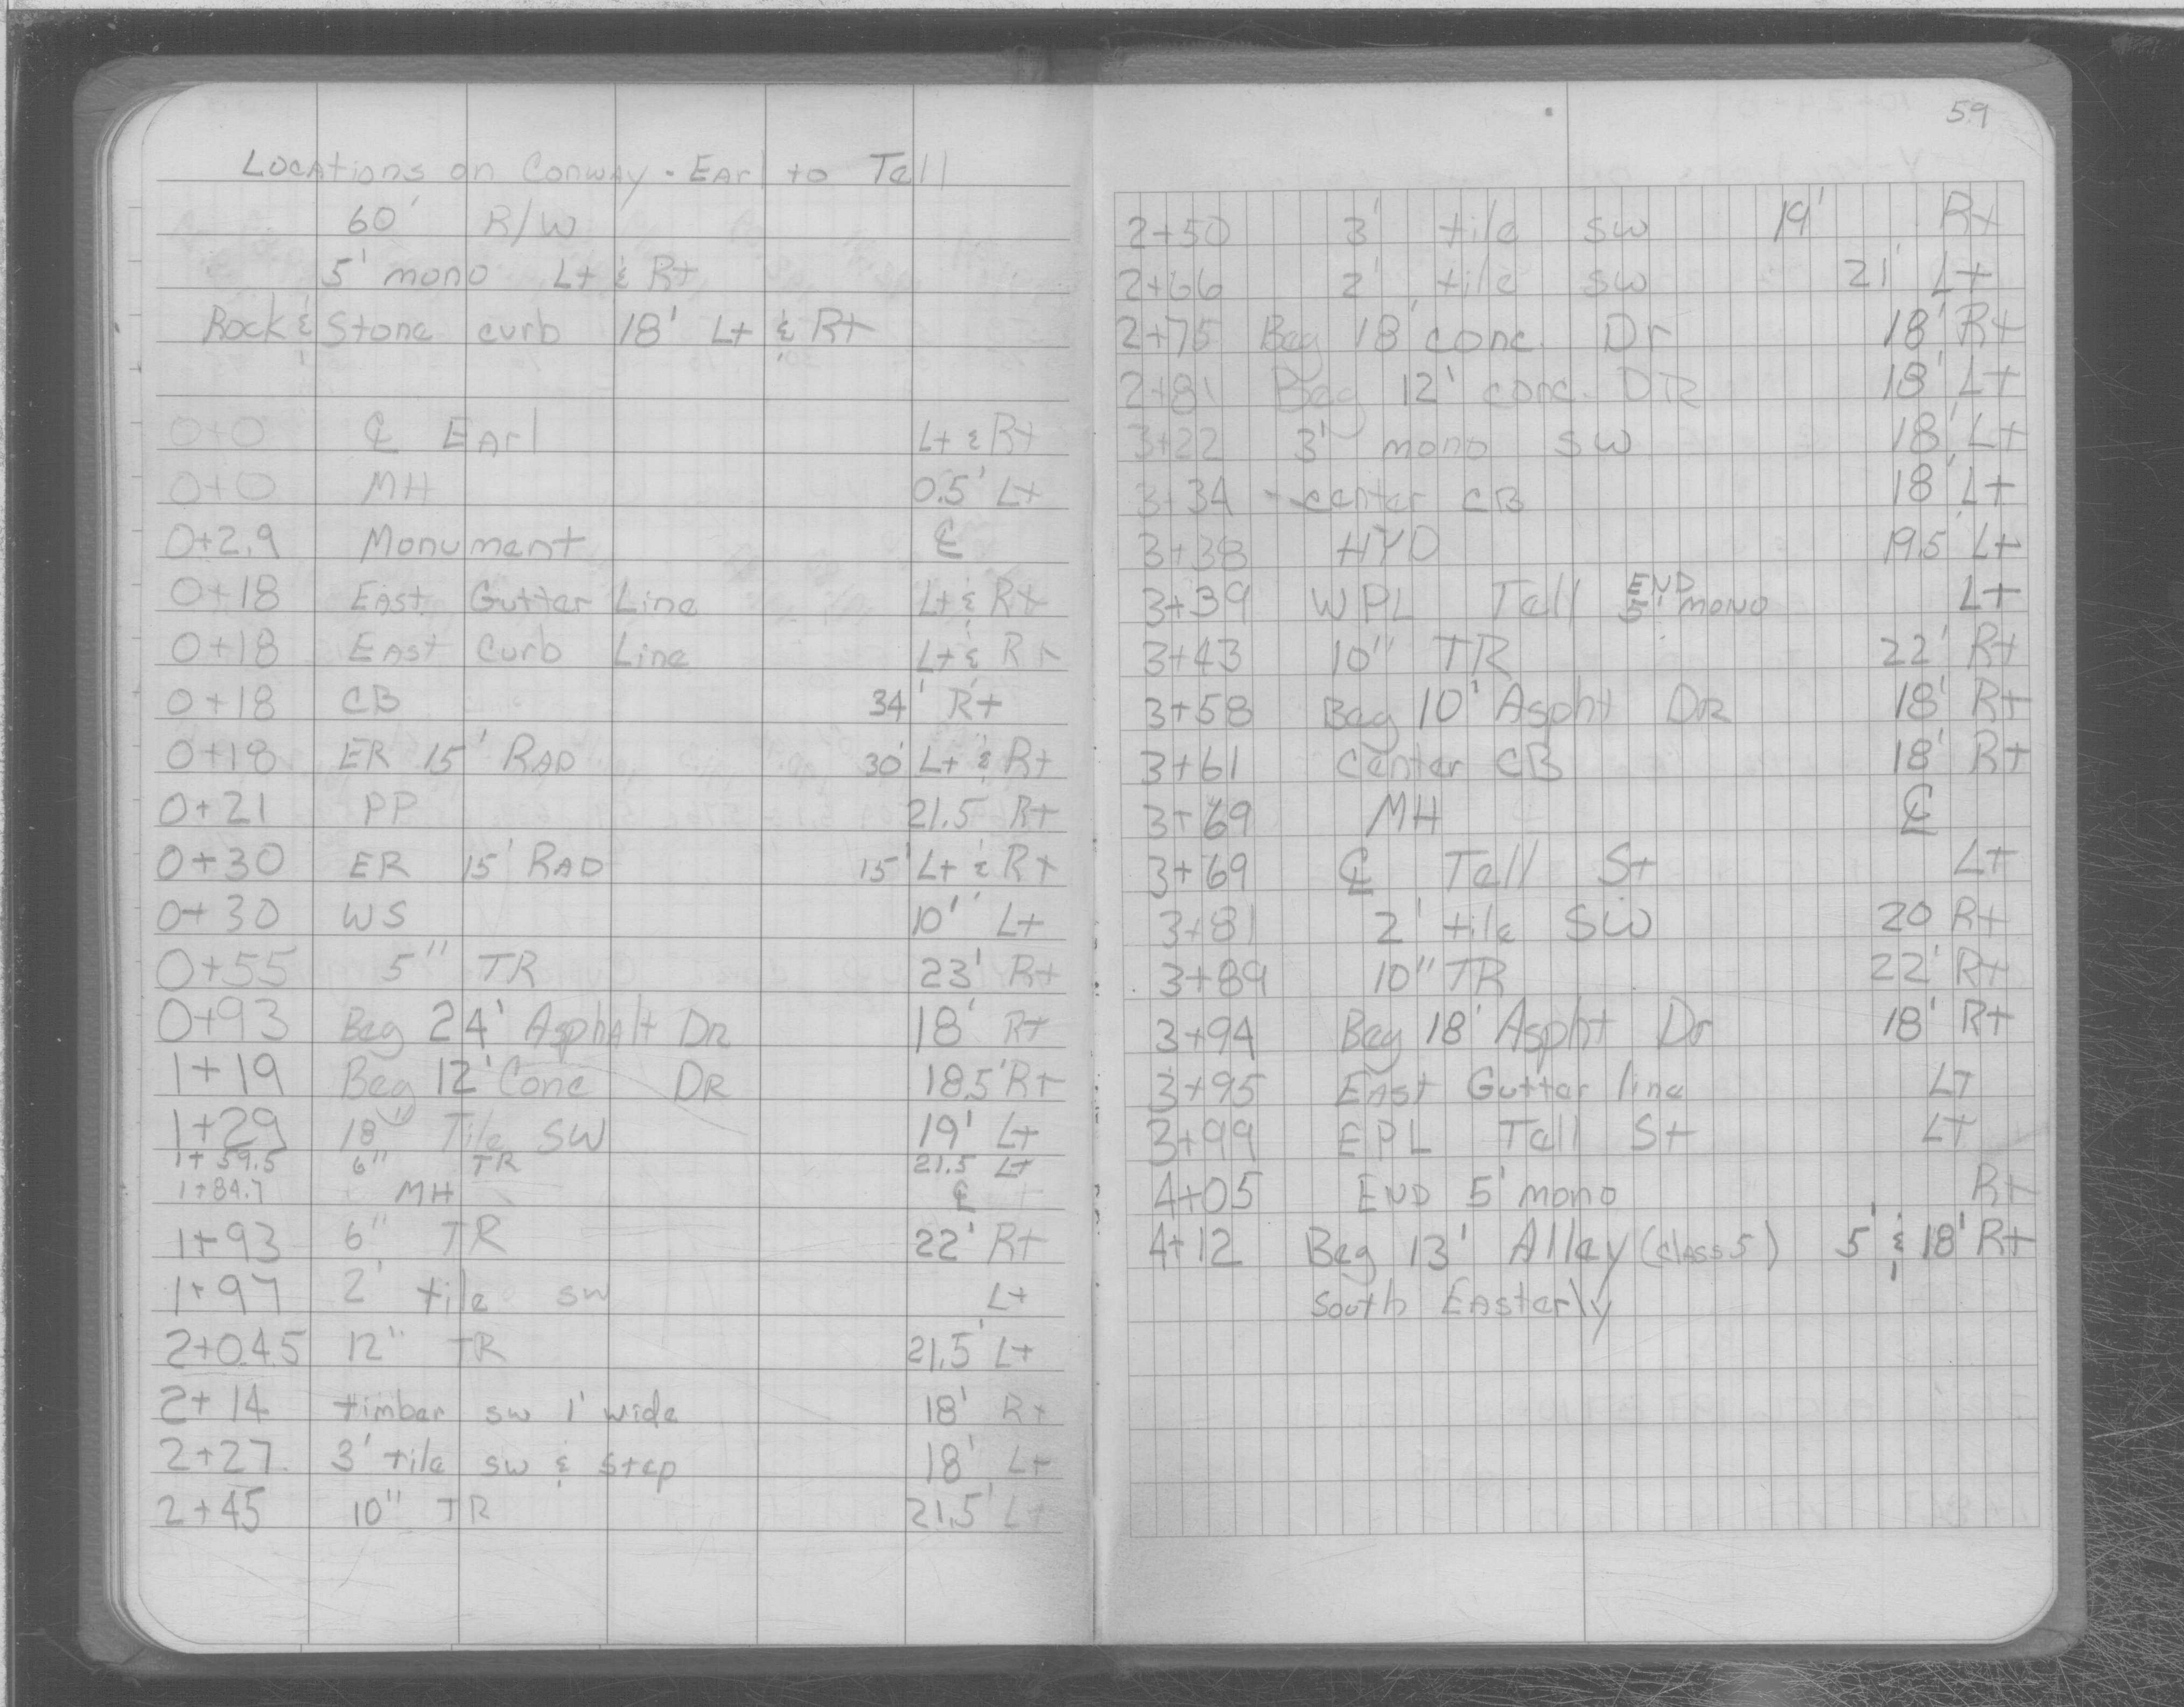 Locations on Conway - Earl to Tell
60' R/W
5' mono Lt & Rt
Rock & Stone curb 18' Lt & Rt
0+0 ℄ Earl Lt & Rt
0+0 MH 0.5' Lt
0+2.9 Monument ℄
0+18 East Gutter Line Lt & Rt
0+18 East Curb Line Lt & Rt
0+18 CB 34' Rt
0+18 ER 15' RAD 30' Lt & Rt
0+21 PP 21.5 Rt
0+30 ER 15' RAD 15' Lt & Rt
0+30 WS 10' Lt
0+55 5" TR 23' Rt
0+93 Beg 24' Asphalt DR 18' Rt
1+19 Beg 12' Conc DR 18.5' Rt
1+29 18" Tile SW 19' Lt
1+59.5 6" TR 21.5 Lt
1+84.7 MH ℄
1+93 6" TR 22' Rt
1+97 2' tile sw Lt
2+04.5 12" TR 21.5' Lt
2+14 timber sw 1' wide 18' Rt
2+27 3' tile sw & step 18' Lt
2+45 10" TR 21.5' Lt
59
2+50 3' tile sw 19' Rt
2+66 2' tile sw 21' Lt
2+75 Beg 18' conc. Dr 18' Rt
2+81 Beg 12' conc. DR 18' Lt
3+22 3' mono sw 18' Lt
3+34 center CB 18' Lt
3+38 HYD 19.5' Lt
3+39 WPL Tell END 5' mono Lt
3+43 10" TR 22' Rt
3+58 Beg 10' Aspht DR 18' Rt
3+61 center CB 18' Rt
3+69 MH ℄
3+69 ℄ Tell St Lt
3+81 2' tile SW 20 Rt
3+89 10" TR 22' Rt
3+94 Beg 18' Aspht Dr 18' Rt
3+95 East Gutter line LT
3+99 EPL Tell St LT
4+05 END 5' mono Rt
4+12 Beg 13' Alley (class 5) 5' & 18' Rt
South Easterly